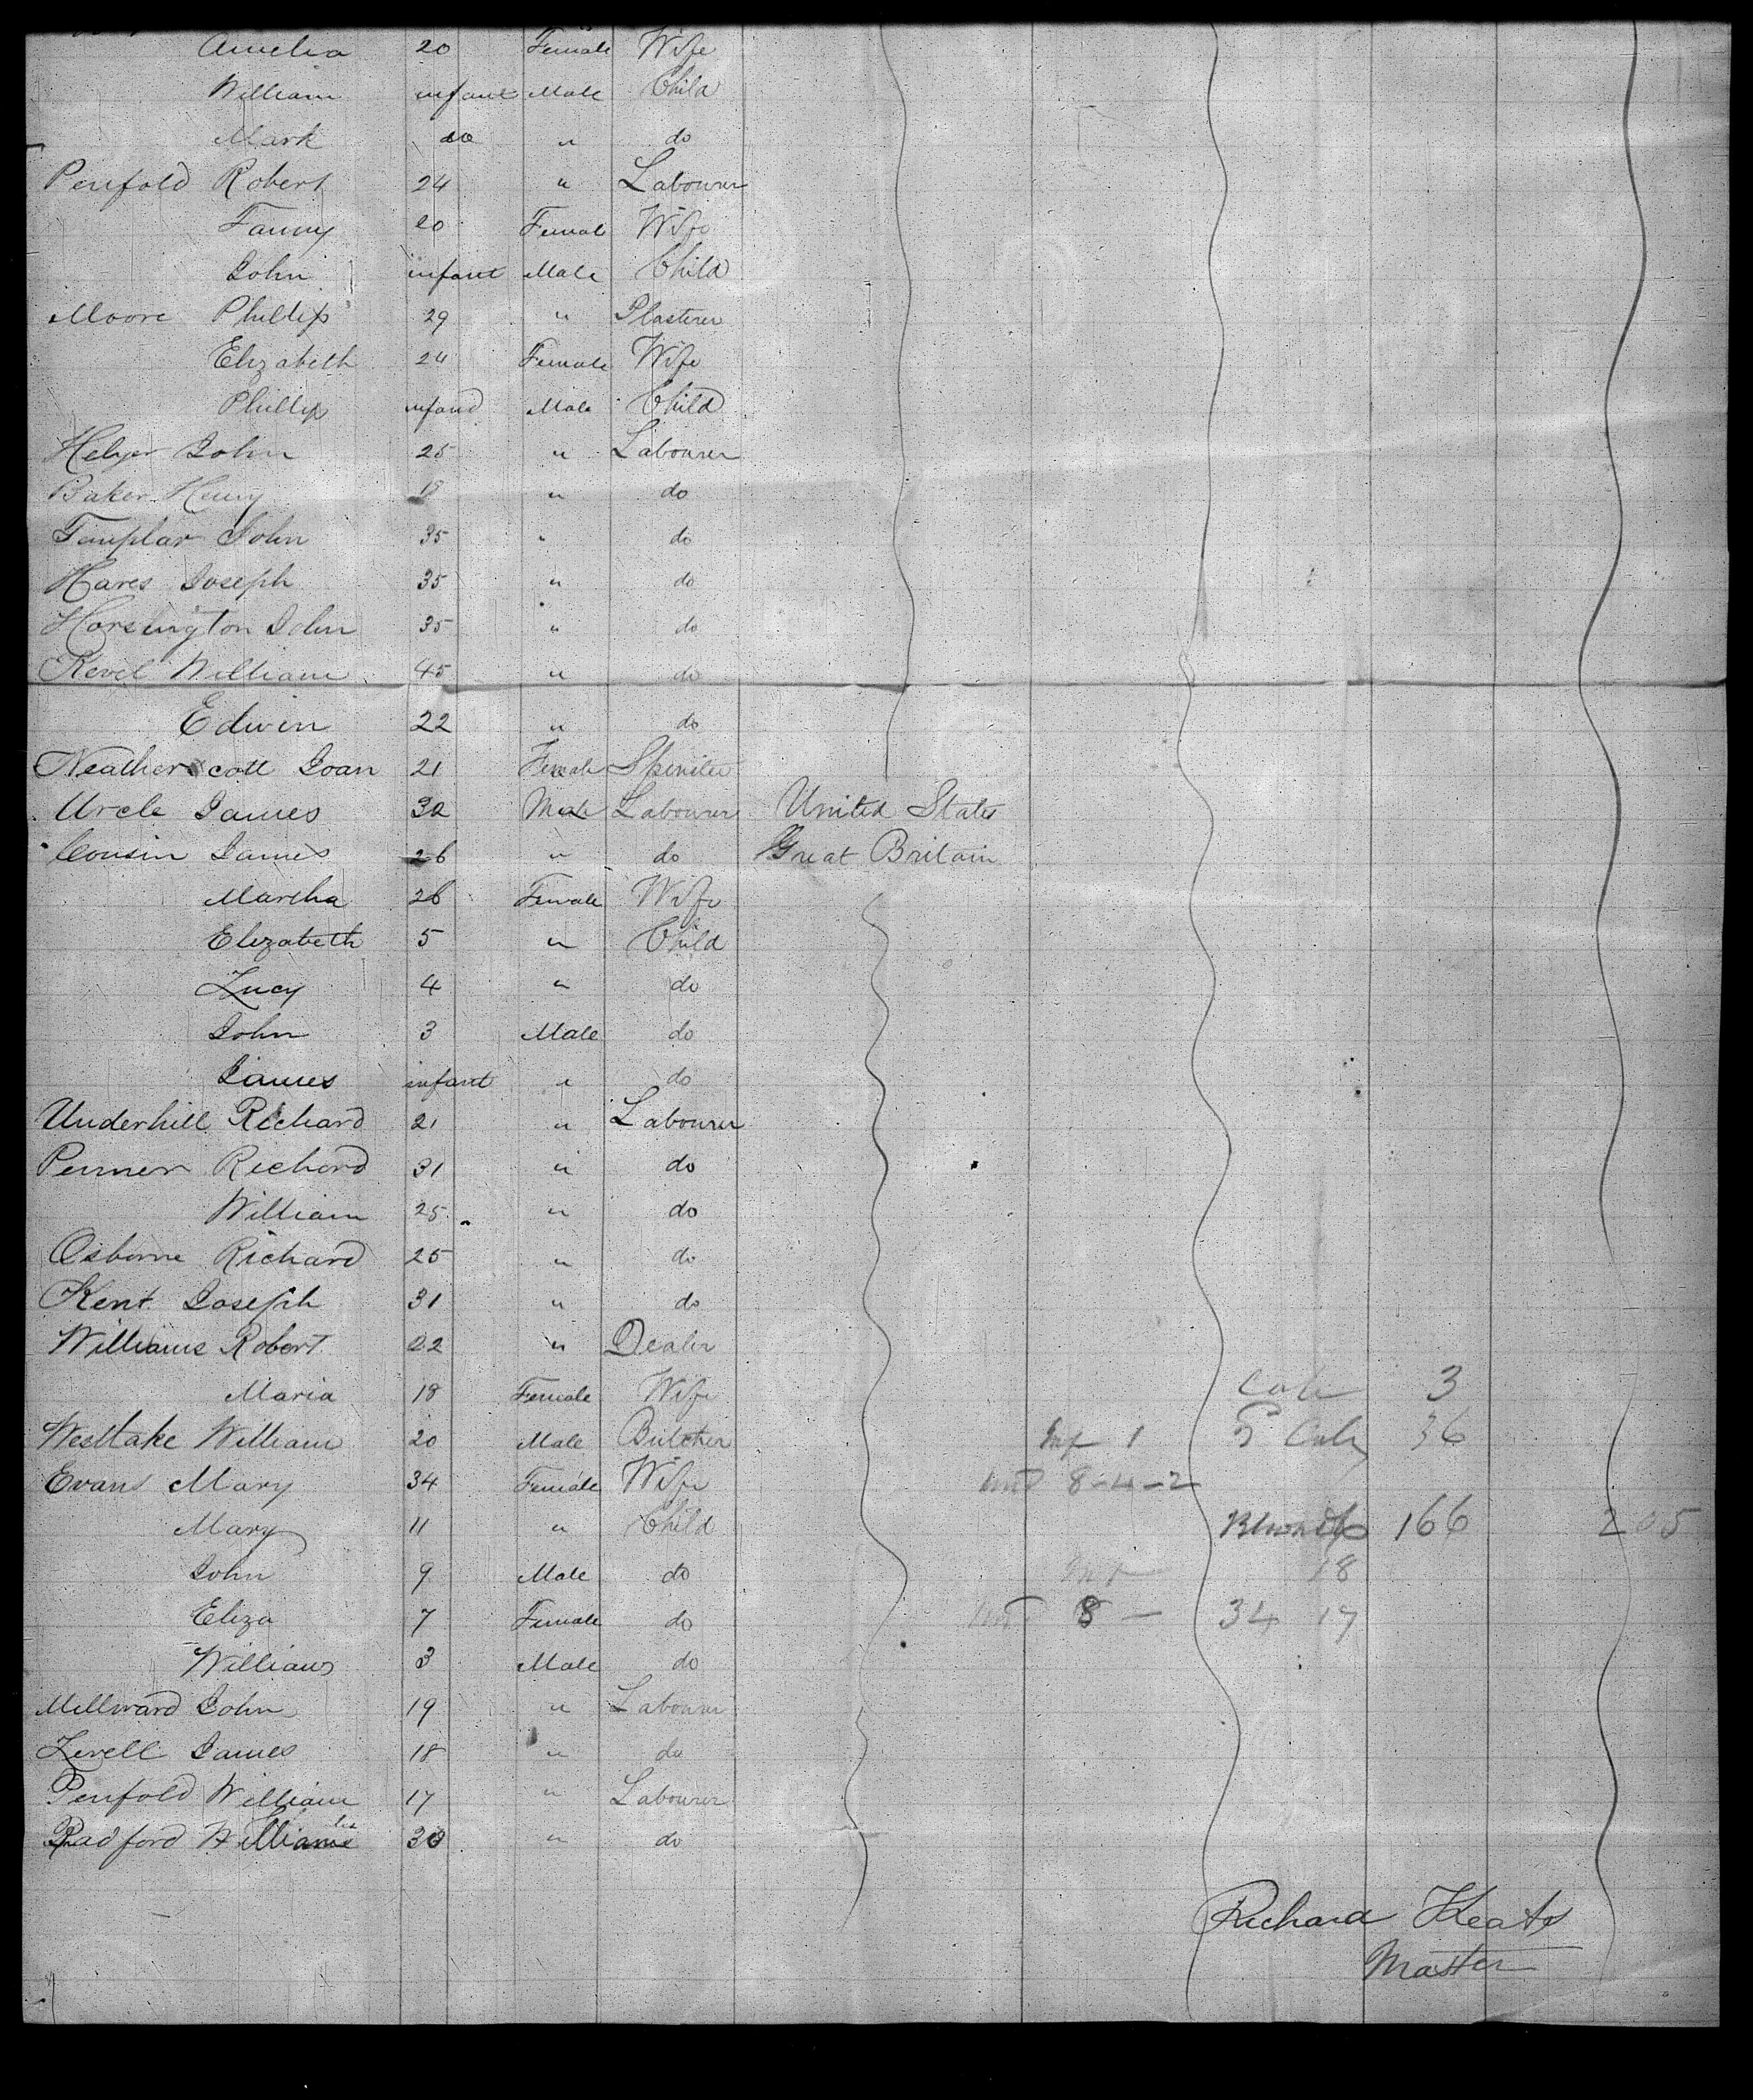 Amelia 20 Female Wife
William infant Male Child
Mark do " do
Penfold Robert 24 " Labourer
Fanny 20 Female Wife
John infant Male Child
Moore Phillip 29 " Plasterer
Elizabeth 24 Female Wife
Phillip infant Male Child
Helyer John 25 " Labourer
Baker Henry 18 " do
Templar John 35 " do
Hares Joseph 35 " do
Horsington John 35 " do
Revel William 45 " do
Edwin 22 " do
Neatherscott Joan 21 Female Spinster
Urcle James 32 Male Labourer United States
Cousin James 26 " do Great Britain
Martha 26 Female Wife
Elizabeth 5 " Child
Lucy 4 " do
John 3 Male do
James infant " do
Underhill Richard 21 " Labourer
Penner Richard 31 " do
William 25 " do
Osborne Richard 25 " do
Kent Joseph 31 " do
Williams Robert 22 " Dealer
Maria 18 Female Wife 3
Westlake William 20 Male Butcher Inf 1 36
Evans Mary 34 Female Wife 8-4-2
Mary 11 " Child 166 205
John 9 Male do 18
Eliza 7 Female do 8 - 34 17
William 3 Male do
Millward John 19 " Labourer
Levell James 18 " do
Penfold William 17 " Labourer
Radford William 30 " do
Richard Keats
Master